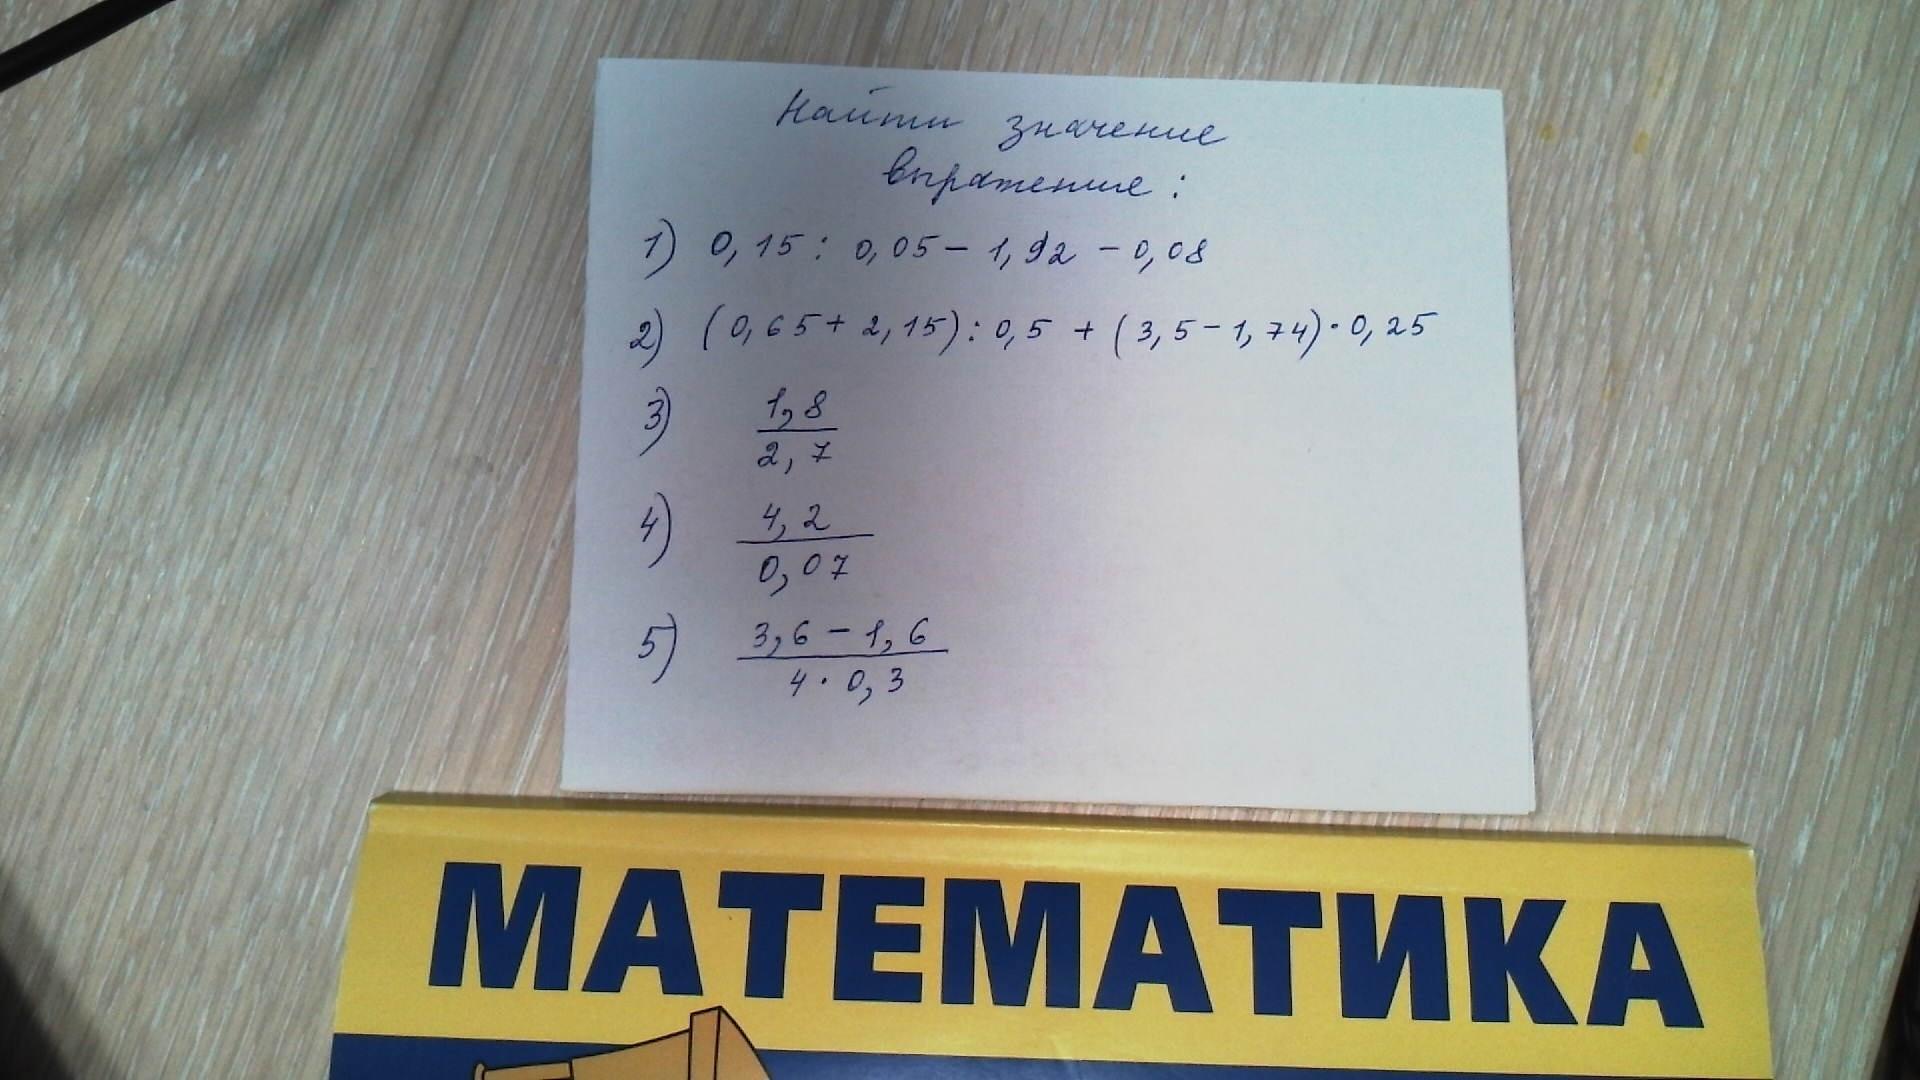 Найти значение
выражение:
1) 0,15 : 0,05 - 1,92 - 0,08
2) (0,65 + 2,15) : 0,5 + (3,5 - 1,74) · 0,25
3) 1,8
2,7
4) 4,2
0,07
5) 3,6 - 1,6
4 · 0,3
МАТЕМАТИКА